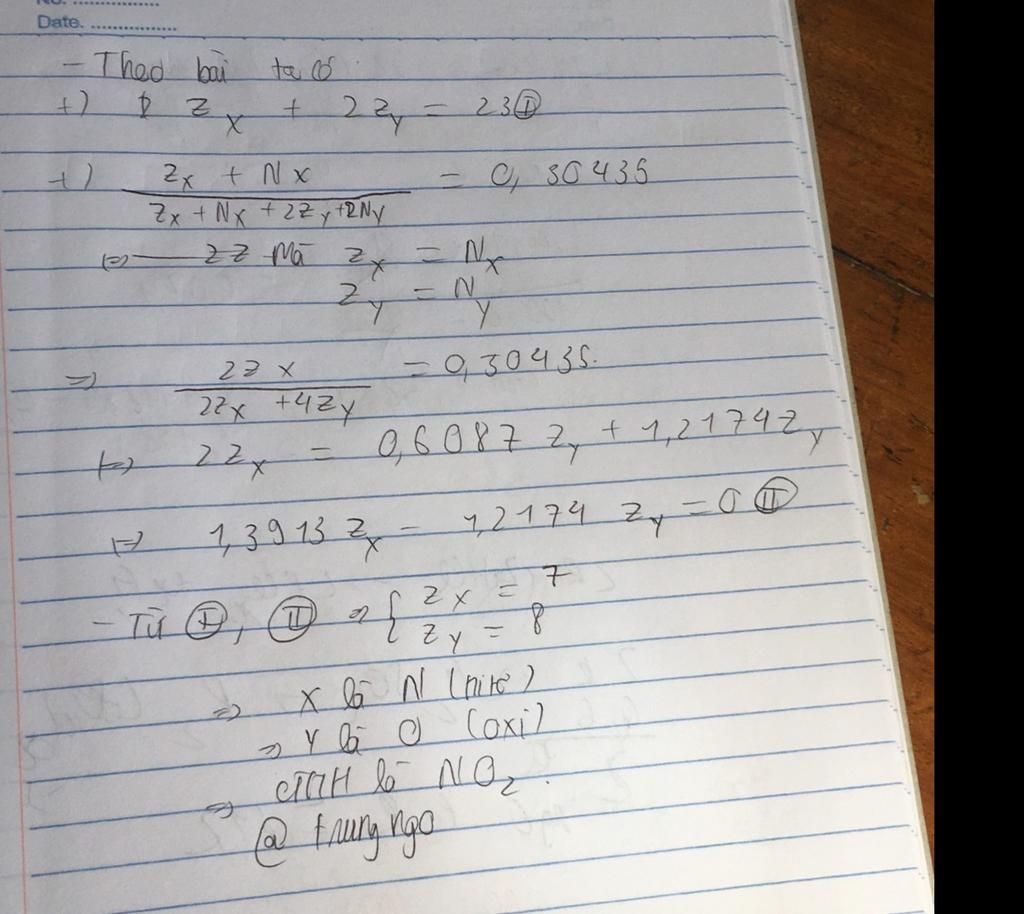 No. ................
Date. ................
- Theo bài ta có
+) Z_X + 2Z_Y = 23 Ⓘ
+) (Z_X + N_X) / (Z_X + N_X + 2Z_Y + 2N_Y) = 0,30435
⇔ 2Z Mà Z_X = N_X
Z_Y = N_Y
⇒ 2Z_X / (2Z_X + 4Z_Y) = 0,30435.
⇔ 2Z_X = 0,6087 Z_Y + 1,2174 Z_Y
⇔ 1,3913 Z_X - 1,2174 Z_Y = 0 Ⓘⓘ
- Từ Ⓘ, Ⓘⓘ ⇒ { Z_X = 7
Z_Y = 8
⇒ X là N (nitơ)
⇒ Y là O (oxi)
⇒ CTPH là NO₂.
@ trung ngo